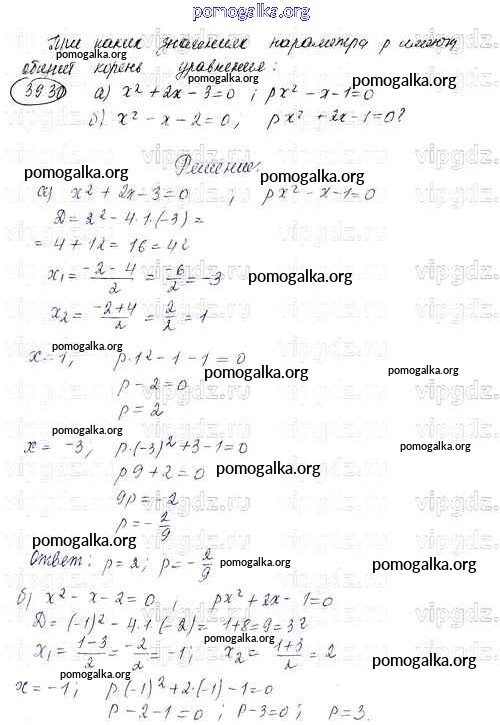 pomogalka.org
При каких значениях параметра p имеют
общий корень уравнения:
pomogalka.org pomogalka.org
393 а) x² + 2x - 3 = 0 ; px² - x - 1 = 0
б) x² - x - 2 = 0; px² + 2x - 1 = 0?
pomogalka.org
Решение:
pomogalka.org pomogalka.org
а) x² + 2x - 3 = 0 ; px² - x - 1 = 0
D = 2² - 4·1·(-3) =
= 4 + 12 = 16 = 4²
x₁ = (-2-4)/2 = -6/2 = -3 pomogalka.org
x₂ = (-2+4)/2 = 2/2 = 1
pomogalka.org
x = 1, p·1² - 1 - 1 = 0
pomogalka.org pomogalka.org
p - 2 = 0
p = 2
pomogalka.org
x = -3, p·(-3)² + 3 - 1 = 0 pomogalka.org
p9 + 2 = 0 pomogalka.org
9p = -2
p = -2/9
pomogalka.org
Ответ: p = 2; p = -2/9 pomogalka.org pomogalka.org
б) x² - x - 2 = 0 ; px² + 2x - 1 = 0
D = (-1)² - 4·1·(-2) = 1+8 = 9 = 3²
pomogalka.org
x₁ = (1-3)/2 = -2/2 = -1; x₂ = (1+3)/2 = 2
pomogalka.org pomogalka.org
x = -1; p·(-1)² + 2·(-1) - 1 = 0
p - 2 - 1 = 0 ; p - 3 = 0 ; p = 3.
pomogalka.org
vipgdz.ru